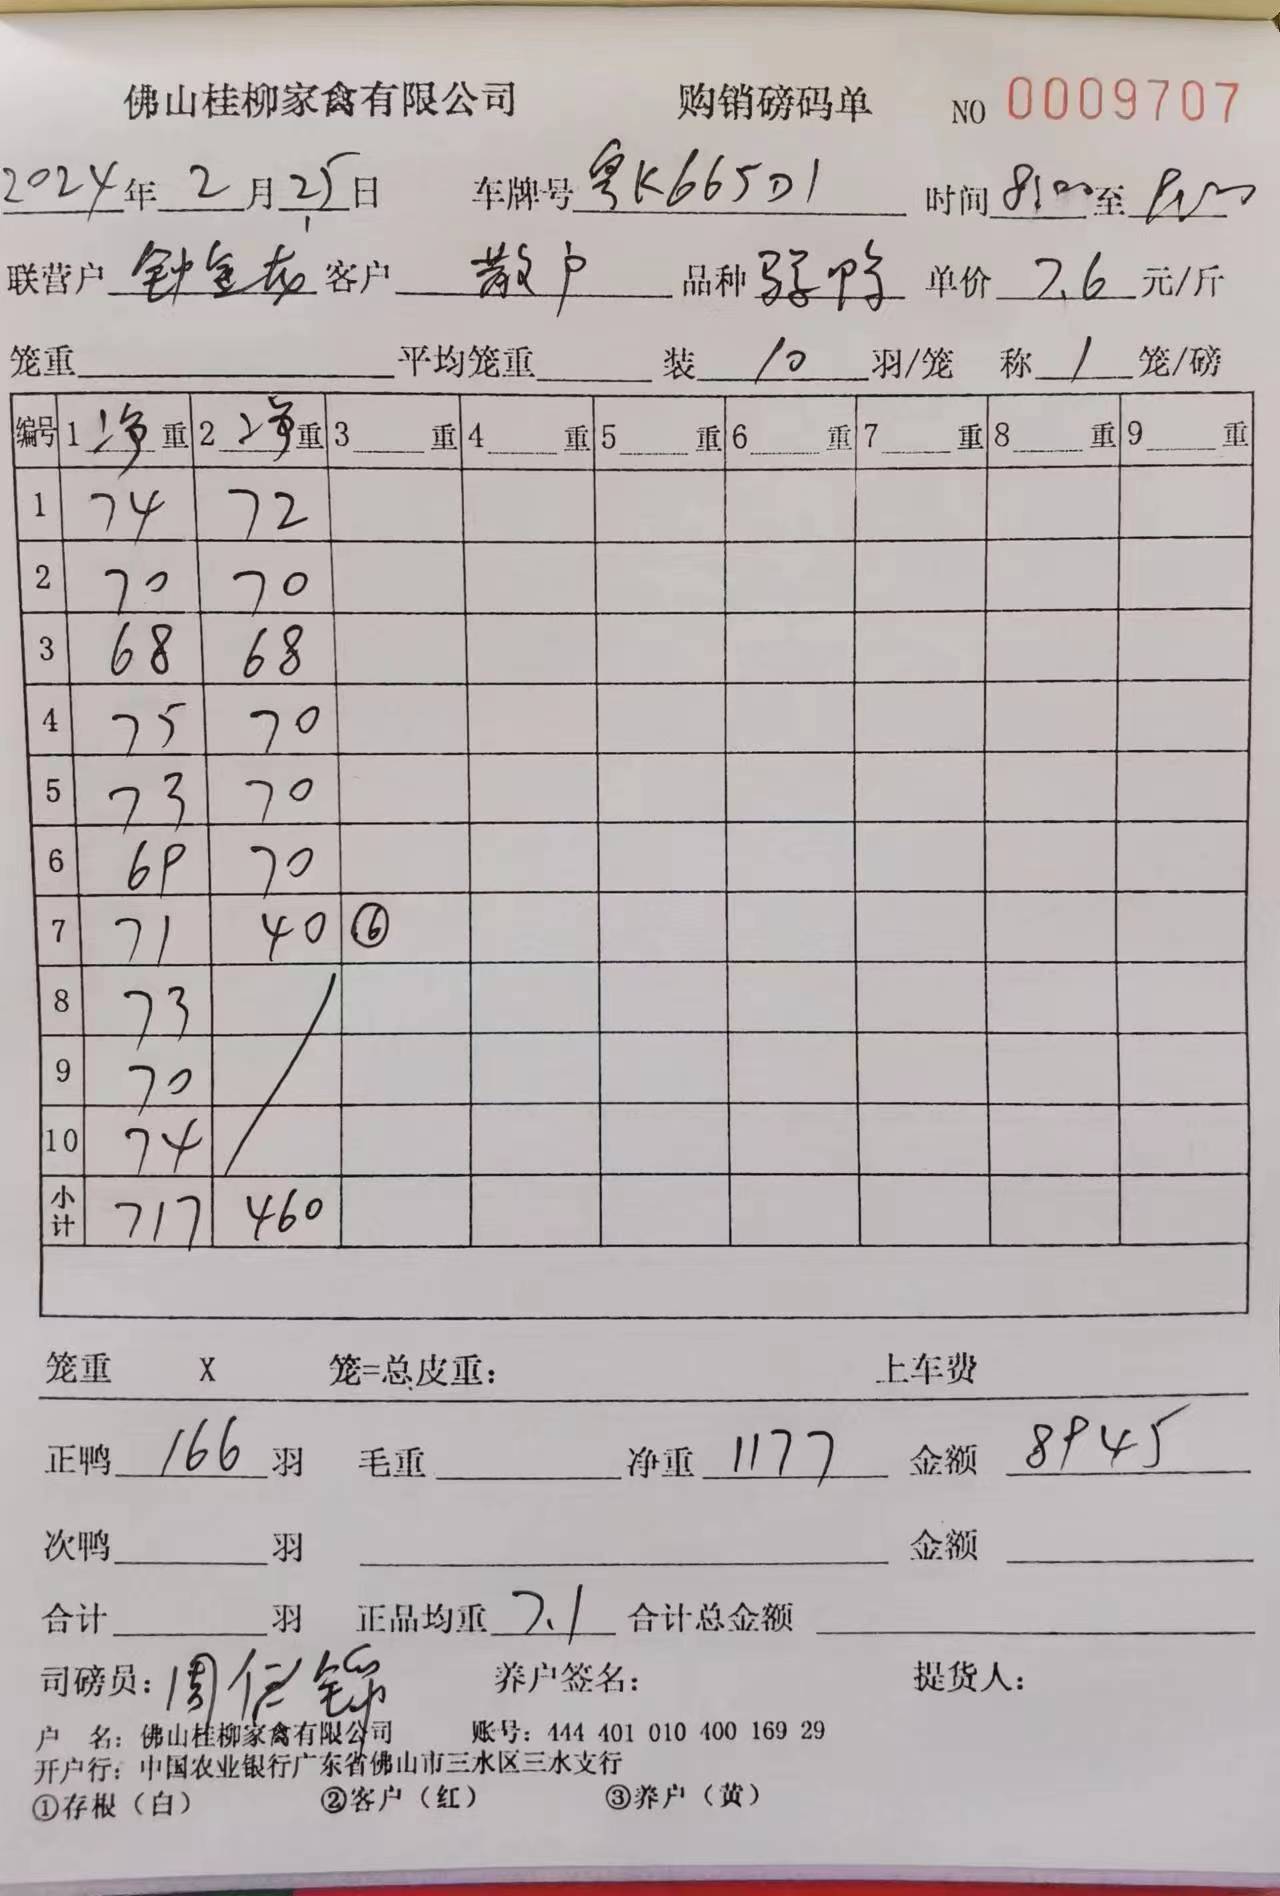 佛山桂柳家禽有限公司 购销磅码单 NO 0009707
2024年 2 月 25 日 车牌号 粤K665D1 时间 8:00 至
联营户 钟金 客户 散户 品种 鸭 单价 7.6 元/斤
笼重 平均笼重 装 10 羽/笼 称 1 笼/磅
编号 1 净 重 2 净 重 3 重 4 重 5 重 6 重 7 重 8 重 9 重
1 74 72
2 70 70
3 68 68
4 75 70
5 73 70
6 69 70
7 71 40 ⑥
8 73
9 70
10 74
小计 717 460
笼重 X 笼=总皮重： 上车费
正鸭 166 羽 毛重 净重 1177 金额 8945
次鸭 羽 金额
合计 羽 正品均重 7.1 合计总金额
司磅员：周 养户签名： 提货人：
户 名：佛山桂柳家禽有限公司 账号：444 401 010 400 169 29
开户行：中国农业银行广东省佛山市三水区三水支行
①存根（白） ②客户（红） ③养户（黄）